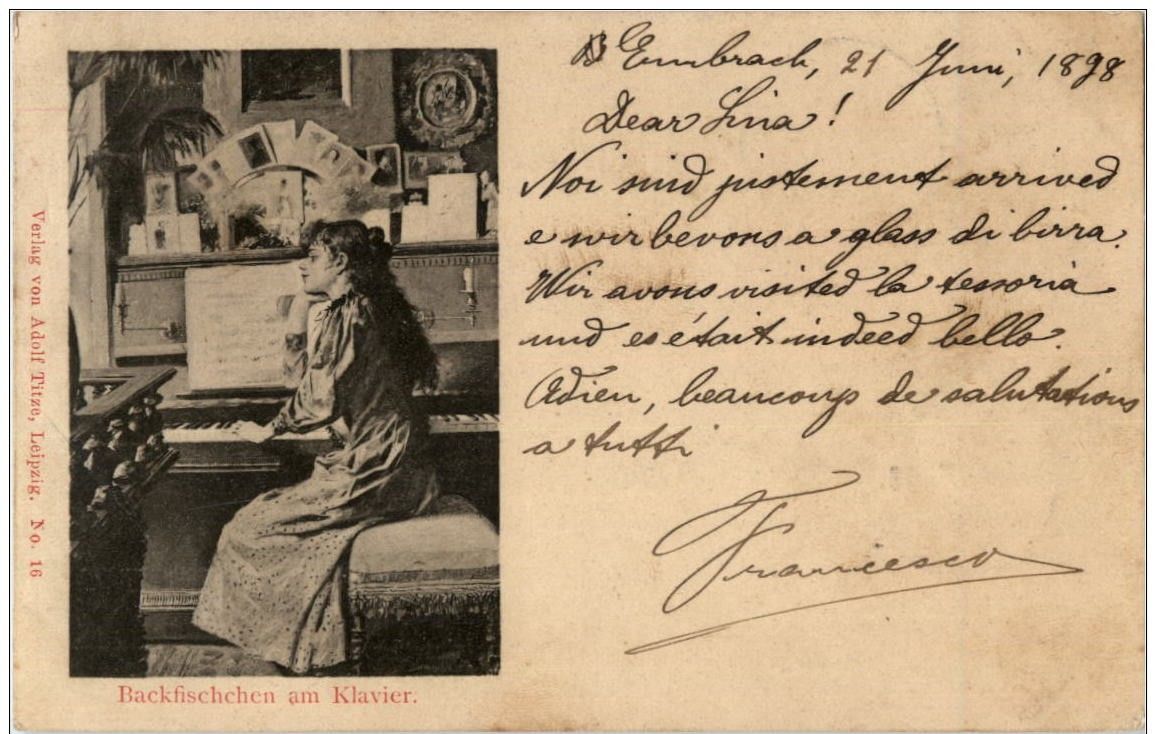 Embrach, 21 Juni, 1898
Dear Lina!
Noi sind justement arrived
e wir bevons a glass di birra.
Wir avons visited la tessoria
und es était indeed bello.
Adieu, beaucoup de salutations
a tutti
Francesco
Verlag von Adolf Titze, Leipzig. No. 16
Backfischchen am Klavier.